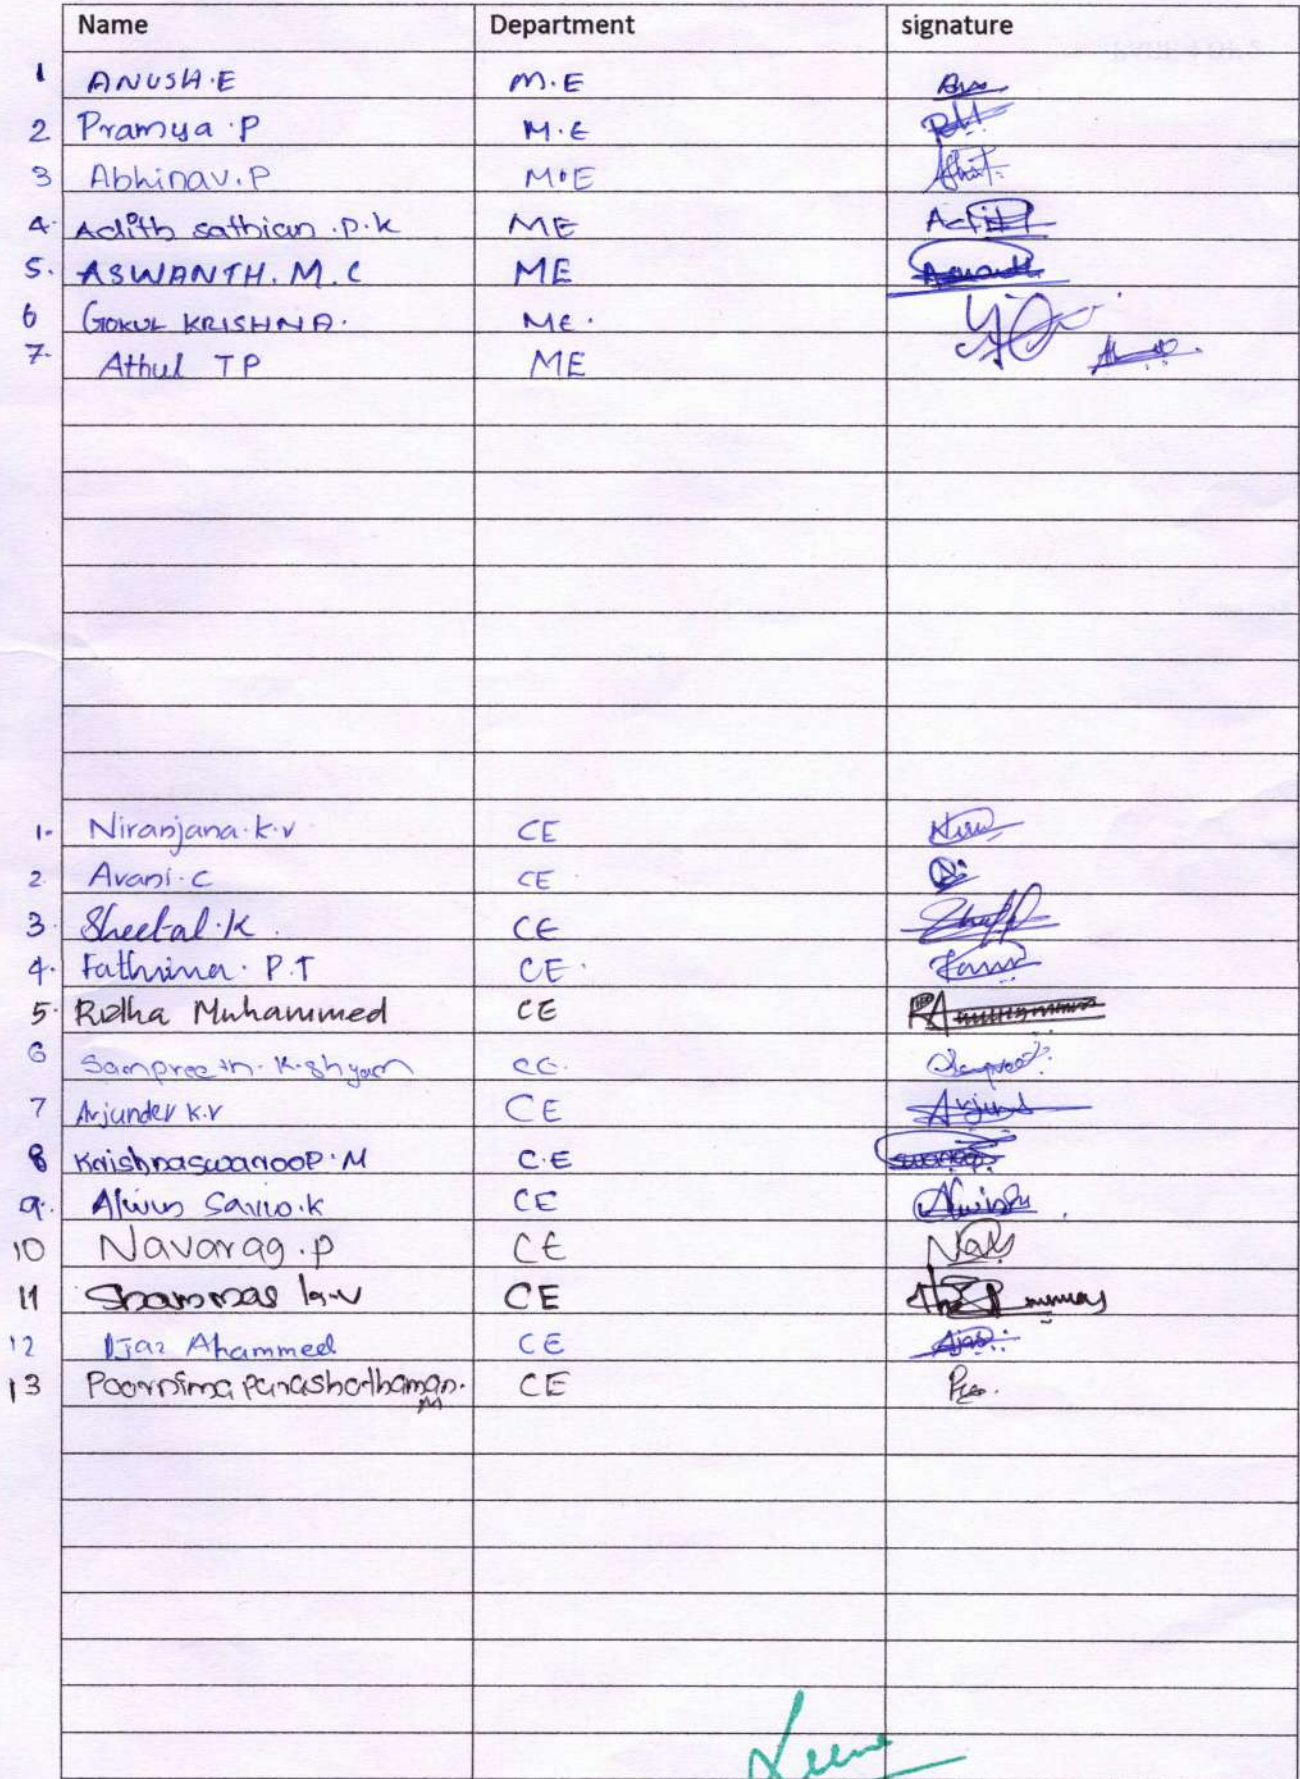 Name Department signature
1 ANUSH.E M.E
2 Pramya.P M.E
3 Abhinav.P M.E
4. Adith sathian.P.K ME Adith
5. ASWANTH.M.C ME Aswanth
6 GOKUL KRISHNA. ME.
7. Athul TP ME
1. Niranjana.k.v CE
2. Avani.C CE
3. Sheetal.K. CE
4. Fathima.P.T CE.
5. Ridha Muhammed CE
6 Sampreeth.K.Shyam CE.
7 Arjundev K.V CE Arjun
8 Krishnaswaroop.M C.E swaroop
9. Alwin Savio.k CE Alwin
10 Navarag.p CE Nav
11 Shammas k.v CE
12 Ijaz Ahammed CE
13 Poornima Purashothaman. CE
M